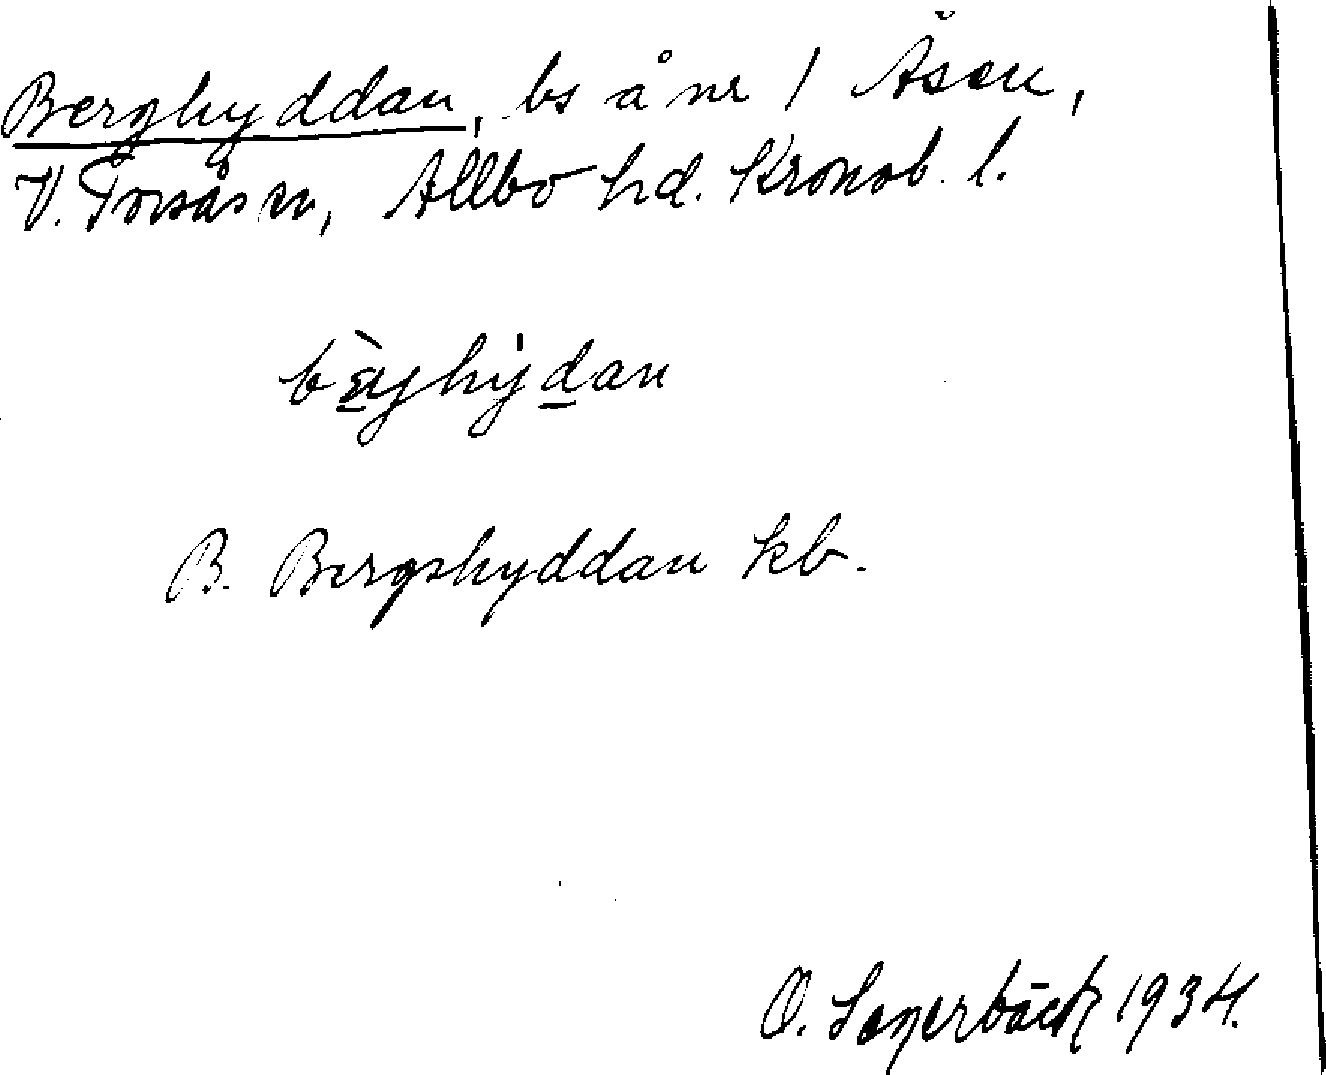 Berghyddan, bs å nr 1 Åsen,
V. Torsås sn, Allbo hd. Kronob. l.
bæ̀rjhýdan
B. Bergshyddan kb.
O. Lagerbäck 1934.